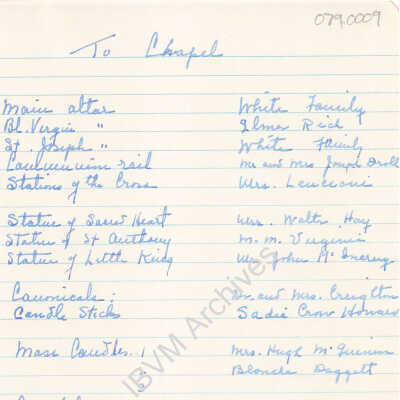 079.0009
To Chapel
Main altar White Family
Bl. Virgin " Elmer Rich
St. Joseph " White Family
Communion rail Mr and Mrs Joseph Droll
Stations of the Cross Mrs. Lencioni
Statue of Sacred Heart Mrs. Walter Hay
Statue of St Anthony M. M. Virginia
Statue of Little King Mrs John McInerny
Canonicals: Dr. and Mrs. Creighton
Candle Sticks Sadie Crow Howard
Mass Candles 1 Mrs. Hugh McGuinn
Blanche Daggett
IBVM Archives